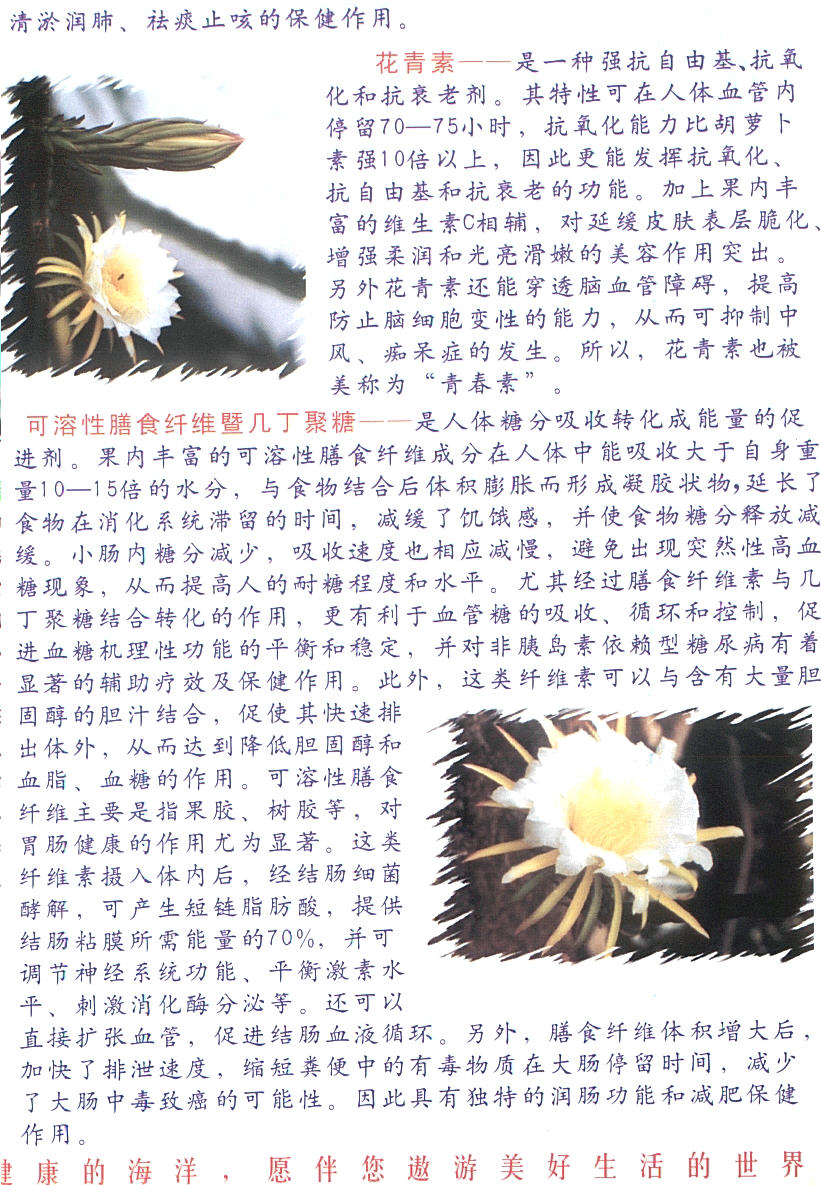 清淤润肺、祛痰止咳的保健作用。
花青素——是一种强抗自由基、抗氧
化和抗衰老剂。其特性可在人体血管内
停留70—75小时，抗氧化能力比胡萝卜
素强10倍以上，因此更能发挥抗氧化、
抗自由基和抗衰老的功能。加上果内丰
富的维生素C相辅，对延缓皮肤表层脆化、
增强柔润和光亮滑嫩的美容作用突出。
另外花青素还能穿透脑血管障碍，提高
防止脑细胞变性的能力，从而可抑制中
风、痴呆症的发生。所以，花青素也被
美称为“青春素”。
可溶性膳食纤维暨几丁聚糖——是人体糖分吸收转化成能量的促
进剂。果内丰富的可溶性膳食纤维成分在人体中能吸收大于自身重
量10—15倍的水分，与食物结合后体积膨胀而形成凝胶状物，延长了
食物在消化系统滞留的时间，减缓了饥饿感，并使食物糖分释放减
缓。小肠内糖分减少，吸收速度也相应减慢，避免出现突然性高血
糖现象，从而提高人的耐糖程度和水平。尤其经过膳食纤维素与几
丁聚糖结合转化的作用，更有利于血管糖的吸收、循环和控制，促
进血糖机理性功能的平衡和稳定，并对非胰岛素依赖型糖尿病有着
显著的辅助疗效及保健作用。此外，这类纤维素可以与含有大量胆
固醇的胆汁结合，促使其快速排
出体外，从而达到降低胆固醇和
血脂、血糖的作用。可溶性膳食
纤维主要是指果胶、树胶等，对
胃肠健康的作用尤为显著。这类
纤维素摄入体内后，经结肠细菌
酵解，可产生短链脂肪酸，提供
结肠粘膜所需能量的70%，并可
调节神经系统功能、平衡激素水
平、刺激消化酶分泌等。还可以
直接扩张血管，促进结肠血液循环。另外，膳食纤维体积增大后，
加快了排泄速度，缩短粪便中的有毒物质在大肠停留时间，减少
了大肠中毒致癌的可能性。因此具有独特的润肠功能和减肥保健
作用。
健康的海洋，愿伴您遨游美好生活的世界